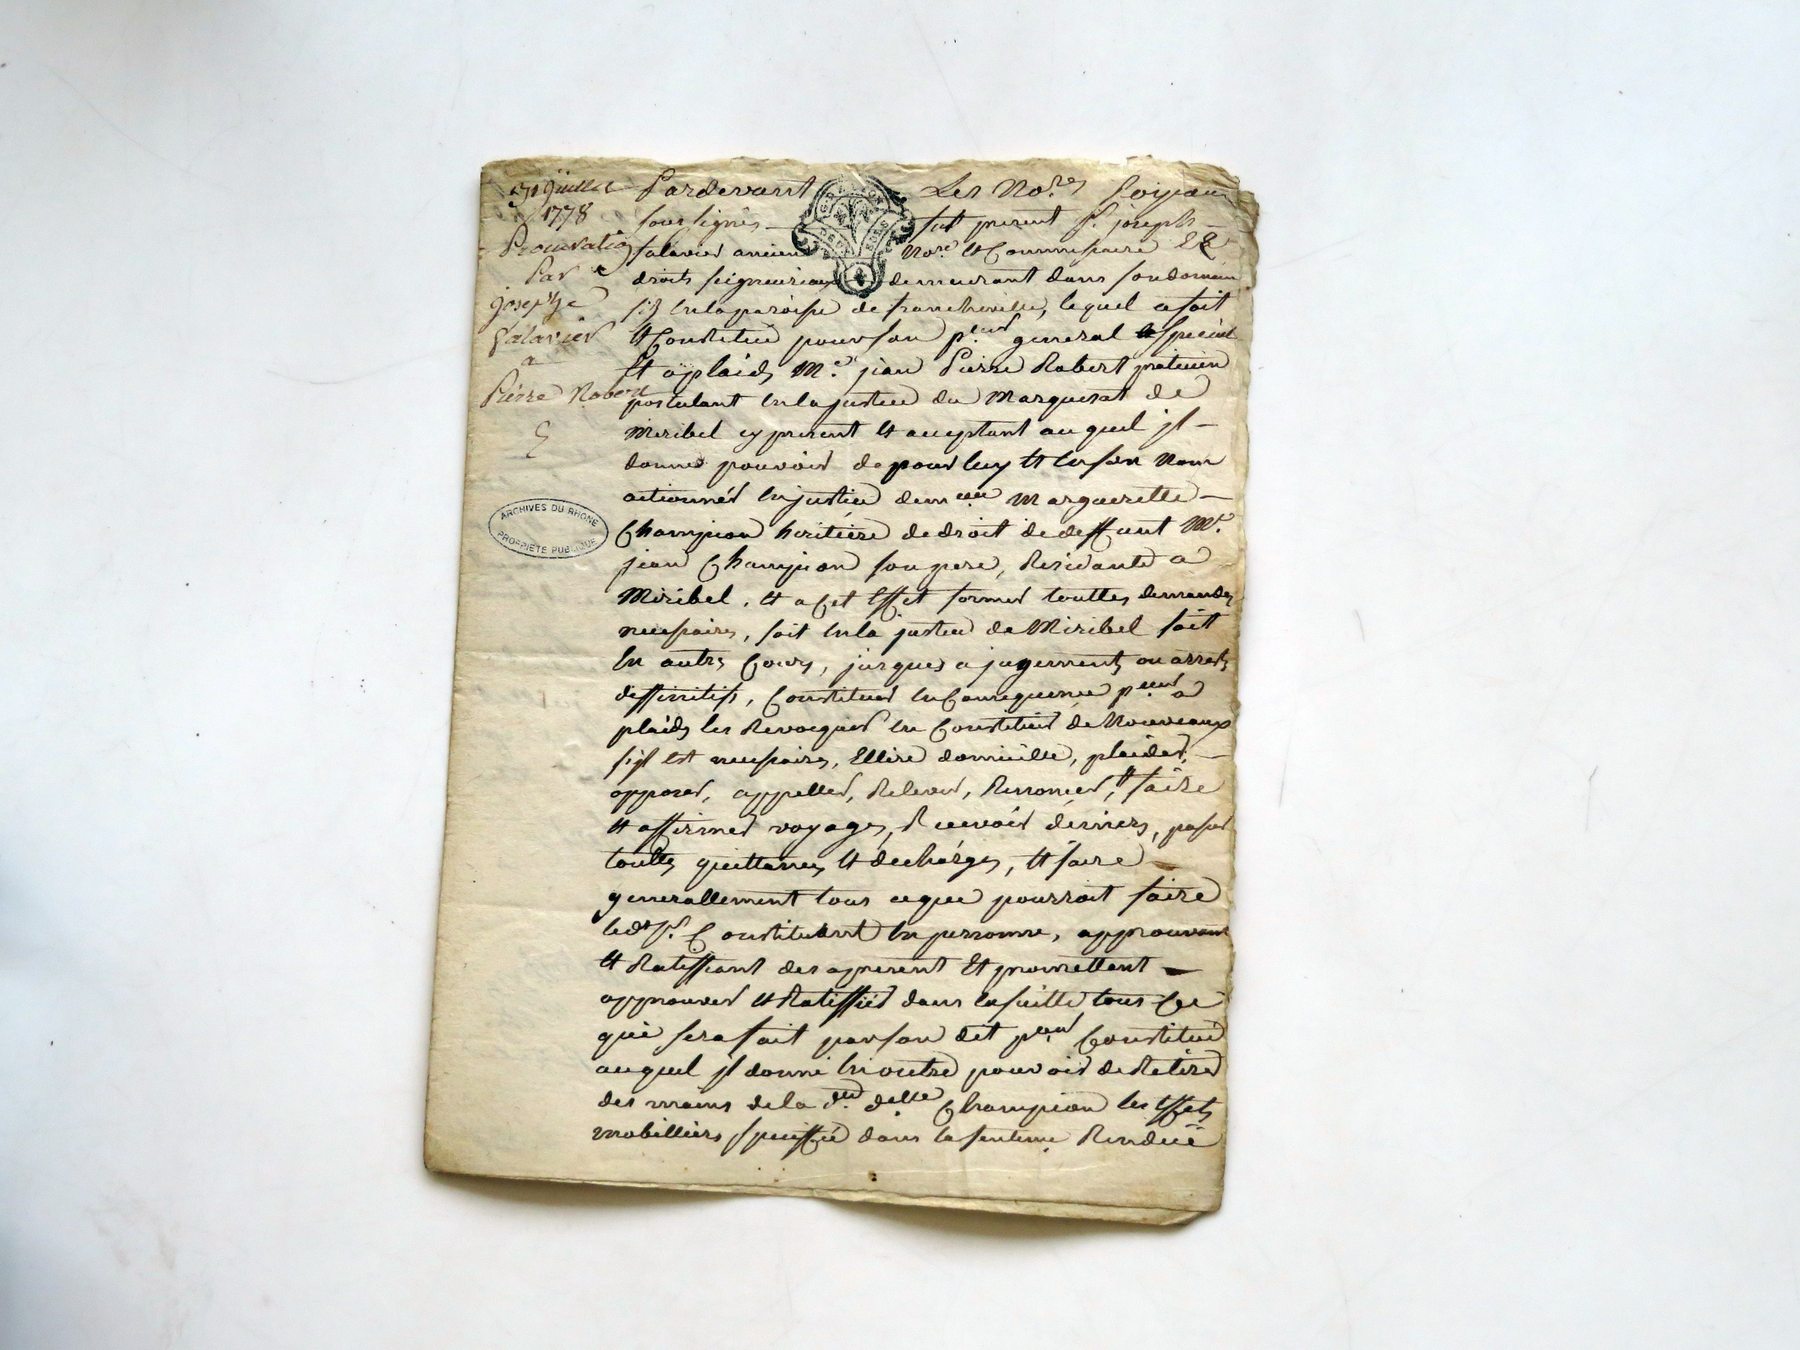 31 Juillet
1778
Procuration
Par
Josephe
Valavier
a
Pierre Robert
ARCHIVES DU RHONE
PROPRIETE PUBLIQUE
Pardevant Les No.res Royaux
soussignés fut present Sr. joseph
Valavier ancien No.re et Commissaire
droits seigneuriaux demeurant dans son domaine
en la paroisse de francheville, lequel a fait
et Constitué pour son p.eur general et special
Et a plaids M.e jean Pierre Robert praticien
postulant en la justice du Marquisat de
Miribel cy present et acceptant auquel jl
donne pouvoir de pour luy et en son Nom
actionner en justice dem.elle Marguerette
Champion heritiere de droit de deffunt Mr.
jean Champion son pere, Residante a
Miribel, et a cet Effet former touttes demandes
necessaires, soit en la justice de Miribel soit
en autres Cours, jusques a jugements ou arrets
deffinitifs, Constituer en Consequence p.eurs a
plaids les Revocquer en Constituer de Nouveaux
sjl est necessaires, Ellire domicille, plaider,
opposer, appeller, Relever, Renoncer, et faire
et affirmer voyages, Recevoir deniers, passer
touttes quittances et decharges, et faire
generallement tous ce que pourroit faire
led. Sr. Constituant en personne, approuvant
et Ratiffiant des apresent Et promettant
approuver et Ratiffier dans la suitte tous Ce
qui sera fait par son dit p.eur Constitué
auquel jl donne en outre pouvoir de Retirer
des mains de la d.te delle Champion les Effets
mobilliers speciffié dans la sentence Renduë